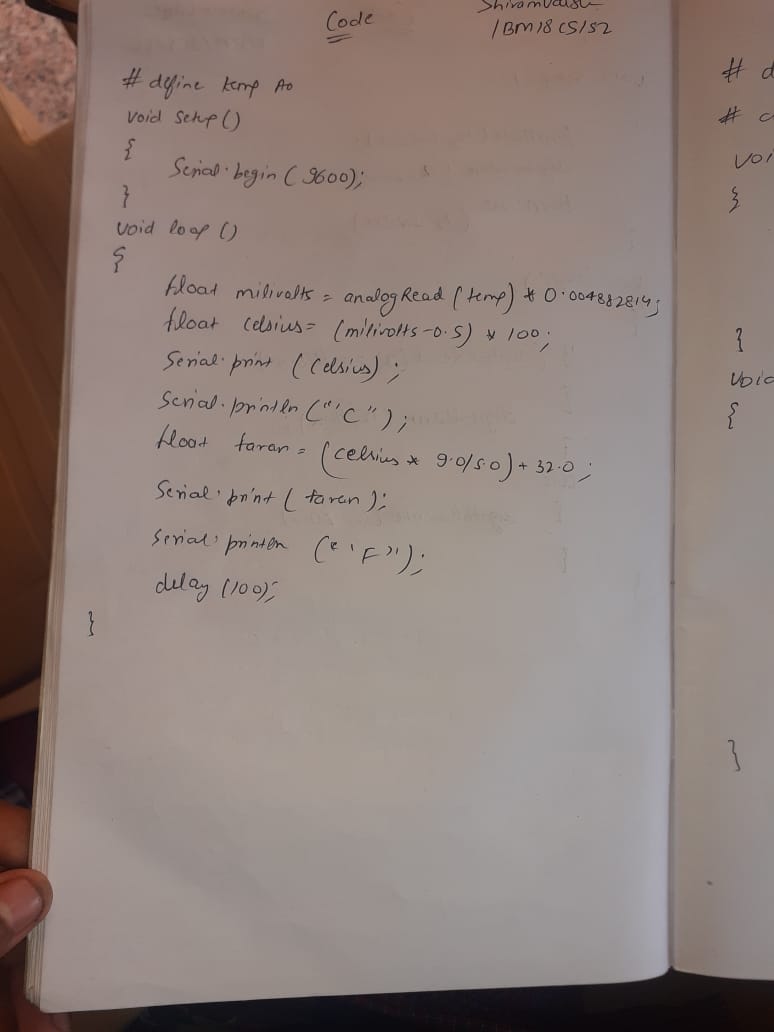 Code
1BM18CS152
# define temp A0
void setup()
{
Serial.begin(9600);
}
void loop()
{
float milivolts = analogRead(temp) * 0.004882814;
float celsius = (milivolts-0.5) * 100;
Serial.print(celsius);
Serial.println("'C");
float faran = (celsius * 9.0/5.0) + 32.0;
Serial.print(faran);
Serial.println("'F");
delay(100);
}
# d
#
voi
}
}
void
{
}